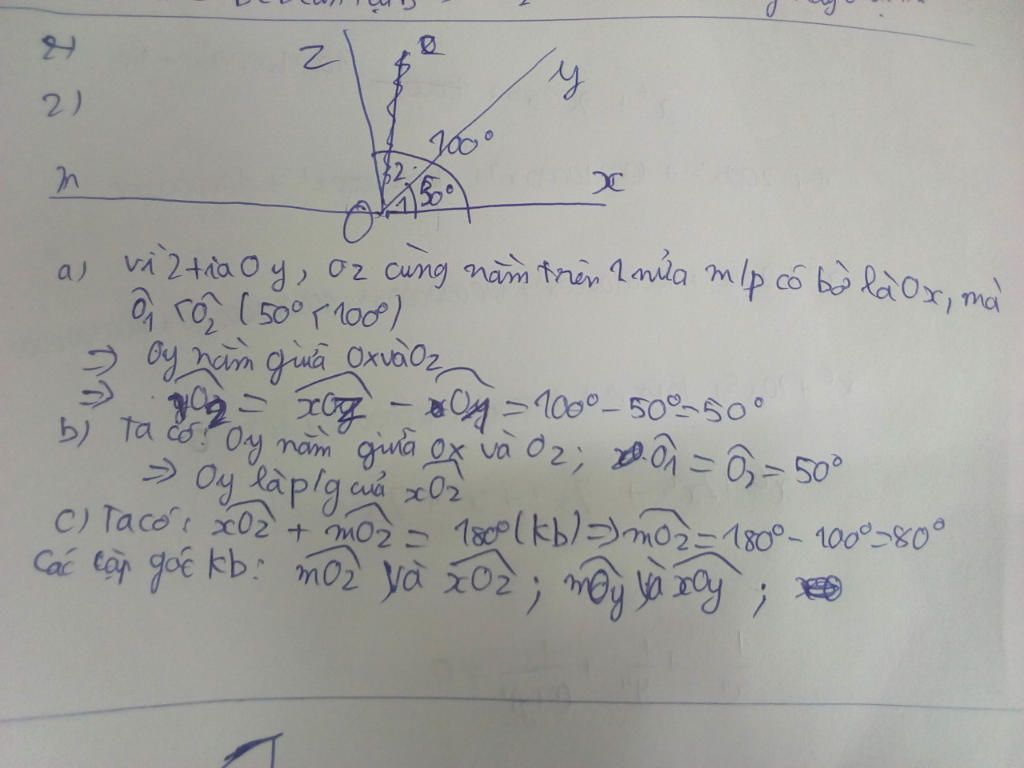 2)
z
y
100°
m
2
50°
1
x
O
a) Vì 2 tia Oy, Oz cùng nằm trên 1 nửa m/p có bờ là Ox, mà
Ô1 < Ô2 (50° < 100°)
=> Oy nằm giữa Ox và Oz
=> yOz = xOz - xOy = 100° - 50° = 50°
b) Ta có: Oy nằm giữa Ox và Oz; Ô1 = Ô2 = 50°
=> Oy là p/g của xOz
c) Ta có: xOz + mOz = 180° (kb) => mOz = 180° - 100° = 80°
Các cặp góc kb: mOz và xOz; mOy và xOy;